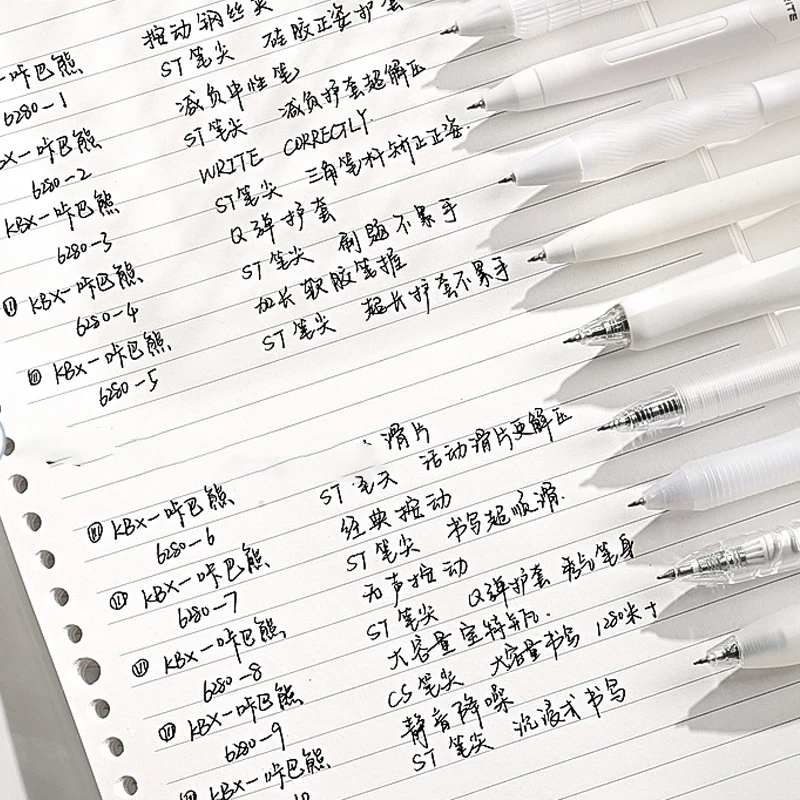 按动钢丝夹
咔巴熊 ST笔尖 硅胶正姿护套
6280-1
减负中性笔
KBX-咔巴熊 ST笔尖 减负护套超解压
6280-2
WRITE CORRECTLY
KBX-咔巴熊 ST笔尖 三角笔杆矫正正姿
6280-3
Q弹护套
KBX-咔巴熊 ST笔尖 刷题不累手
6280-4
加长软胶笔握
KBX-咔巴熊 ST笔尖 超长护套不累手
6280-5
滑片
KBX-咔巴熊 ST笔尖 活动滑片更解压
6280-6
经典按动
KBX-咔巴熊 ST笔尖 书写超顺滑.
6280-7
无声按动
KBX-咔巴熊 ST笔尖 Q弹护套 笔身
6280-8
大容量宝特瓶.
KBX-咔巴熊 CS笔尖 大容量书写 1280米+
6280-9
静音降噪
KBX-咔巴熊 ST笔尖 沉浸式书写
10
WRITE